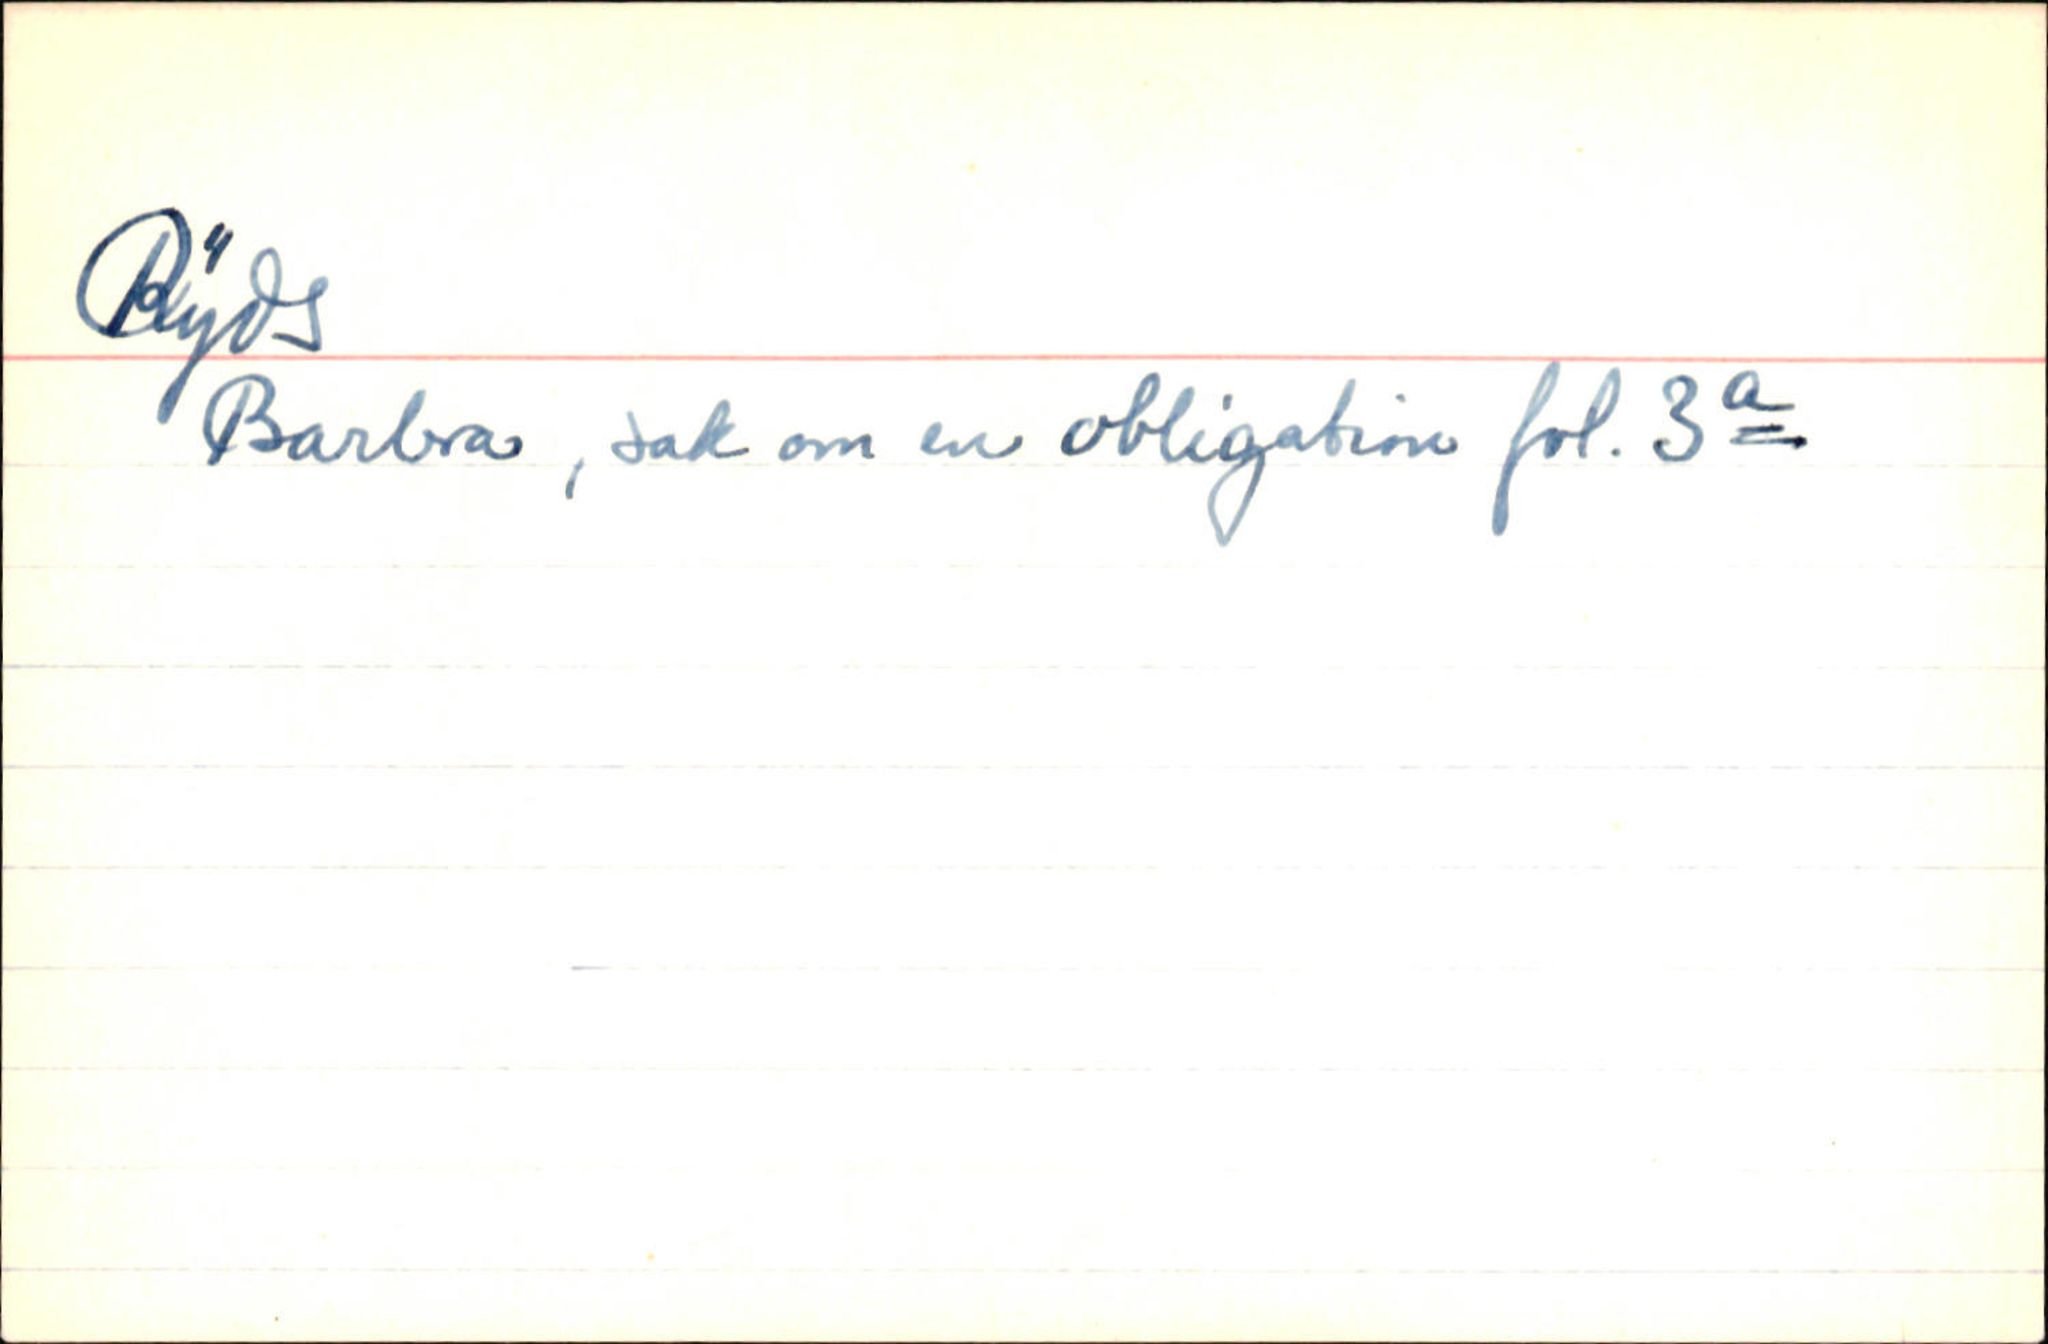 Rÿds
Barbra, sak om en obligation fol. 3a